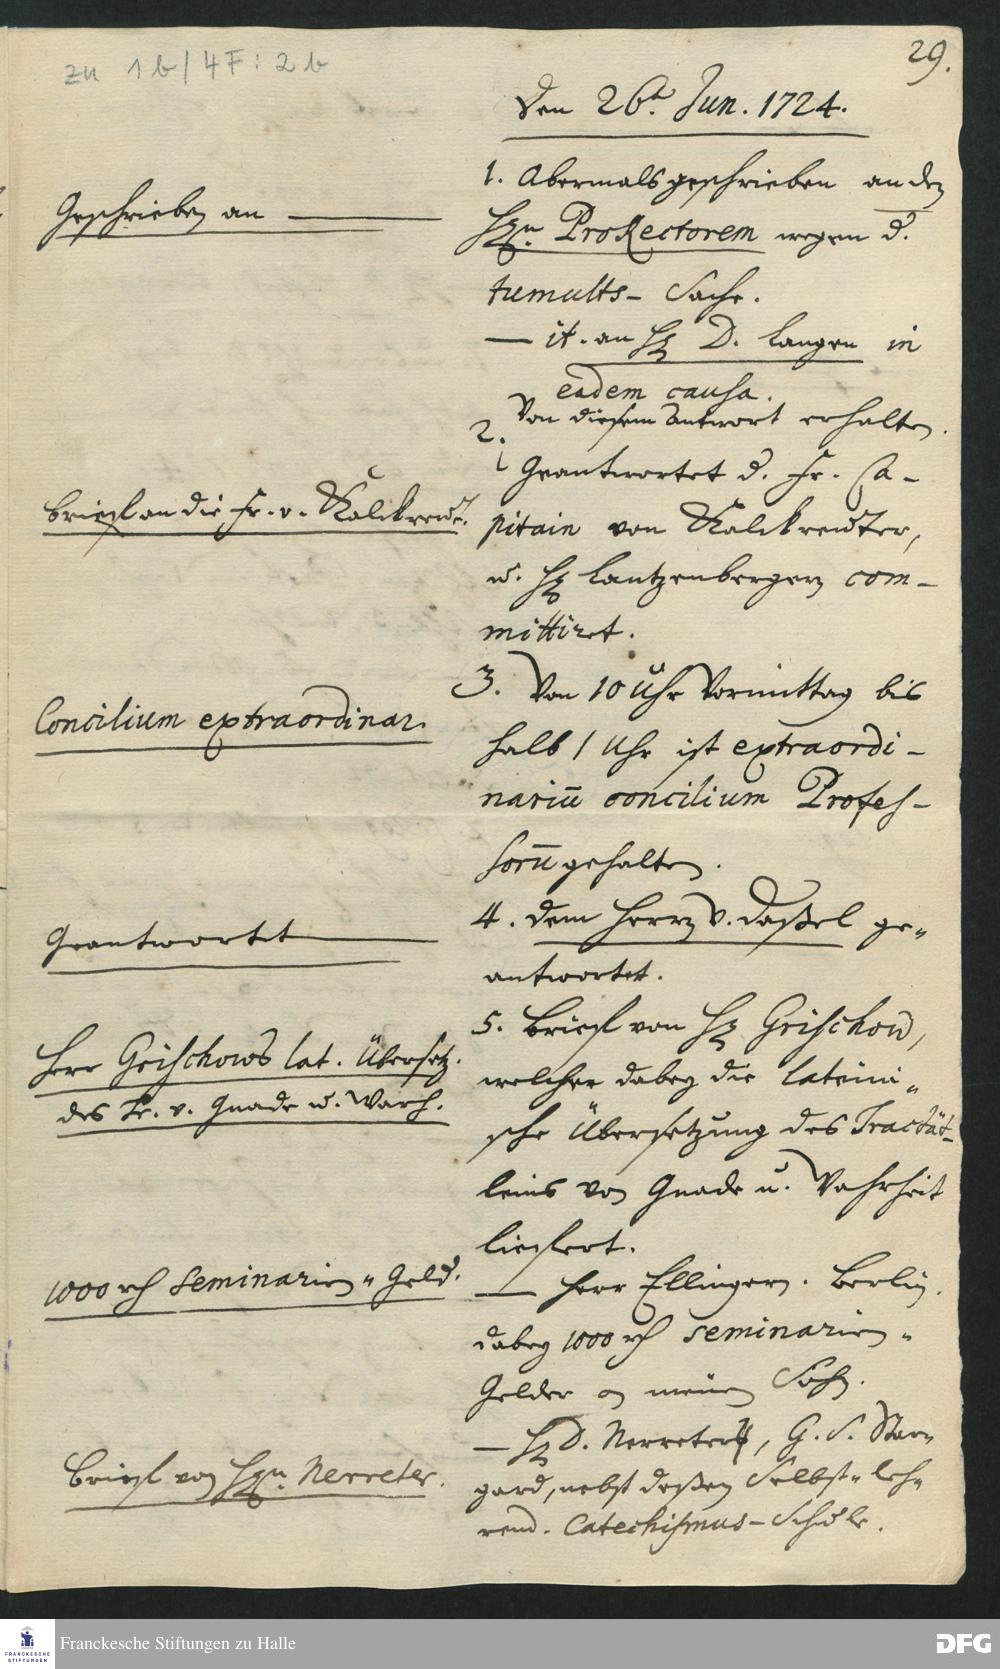 zu 1 b / 4 F : 2 b
29.
Den 26t. Jun. 1724.
Geschrieben an
1. Abermals geschrieben an den
Hrn. ProRectorem wegen d.
tumults- Sache.
— it. an H. D. Langen in
eadem causa.
Von diesem Antwort erhalten.
Brieff an die Fr. v. Kalckreut.
2. Geantwortet d. Fr. Ca-
pitain von Kalckreuter,
u. H. Lantzenbergern com-
mittiret.
Concilium extraordinar.
3. Von 10 Uhr Vormittag bis
halb 1 Uhr ist extraordi-
nariū concilium Profes-
sorū gehalten.
Geantwortet
4. dem Herrn v. Daßel ge-
antwortet.
Herr Grischows lat. Übersetz.
des Tr. v. Gnade u. Warh.
5. Brieff von H. Grischow,
welcher dabey die lateini-
sche Übersetzung des Tractät-
leins von Gnade u. Wahrheit
liefert.
1000 rh Seminarien-Geld.
— Herr Ellinger. Berlin.
dabey 1000 rh seminarien-
Gelder an meinen Sohn.
Brieff von Hrn. Nerreter.
— H. D. Nerreter, G. S. Star-
gard, nebst deßen Selbst-leh-
rend. Catechismus-Schule.
Franckesche Stiftungen zu Halle
FRANCKESCHE
STIFTUNGEN
DFG